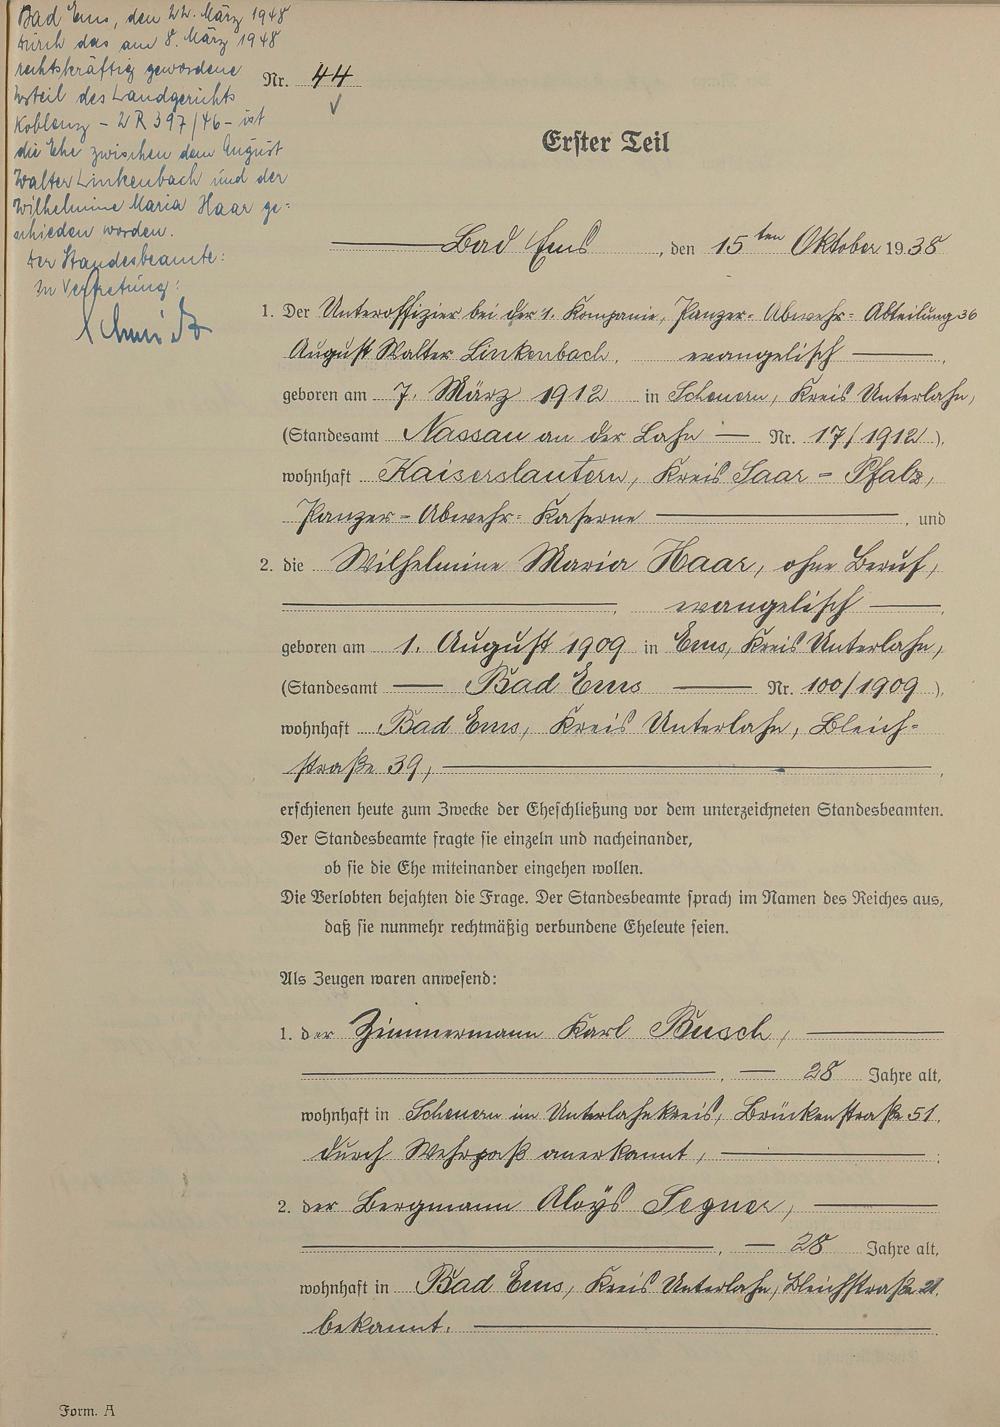 Bad Ems, den 22. März 1948
Durch das am 8. März 1948
rechtskräftig gewordene
Urteil des Landgerichts
Koblenz - 2 R 397/46 - ist
die Ehe zwischen dem August
Walter Linkenbach und der
Wilhelmine Maria Haar ge-
schieden worden.
Der Standesbeamte:
In Vertretung:
Schmidt
Nr. 44
Erster Teil
Bad Ems, den 15ten Oktober 1938
1. Der Unteroffizier bei der 1. Kompanie, Panzer-Abwehr-Abteilung 36
August Walter Linkenbach, evangelisch,
geboren am 7. März 1912 in Scheuern, Kreis Unterlahn,
(Standesamt Nassau an der Lahn Nr. 17/1912),
wohnhaft Kaiserslautern, Kreis Saar-Pfalz,
Panzer-Abwehr-Kaserne, und
2. die Wilhelmine Maria Haar, ohne Beruf,
evangelisch,
geboren am 1. August 1909 in Ems, Kreis Unterlahn,
(Standesamt Bad Ems Nr. 100/1909),
wohnhaft Bad Ems, Kreis Unterlahn, Bleich-
straße 39,
erschienen heute zum Zwecke der Eheschließung vor dem unterzeichneten Standesbeamten.
Der Standesbeamte fragte sie einzeln und nacheinander,
ob sie die Ehe miteinander eingehen wollen.
Die Verlobten bejahten die Frage. Der Standesbeamte sprach im Namen des Reiches aus,
daß sie nunmehr rechtmäßig verbundene Eheleute seien.
Als Zeugen waren anwesend:
1. der Zimmermann Karl Busch,
28 Jahre alt,
wohnhaft in Scheuern im Unterlahnkreis, Brückenstraße 51,
durch Wehrpaß anerkannt,;
2. der Bergmann Aloÿs Segner,
28 Jahre alt,
wohnhaft in Bad Ems, Kreis Unterlahn, Bleichstraße 21,
bekannt.
Form. A